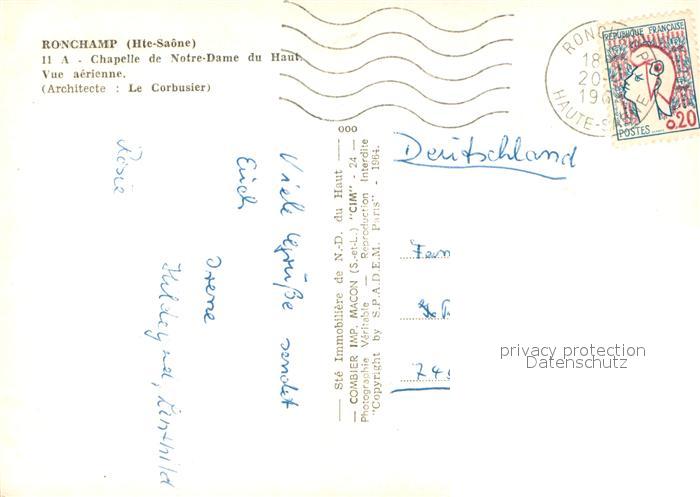 RONCHAMP (Hte-Saône)
11 A - Chapelle de Notre-Dame du Haut.
Vue aérienne.
(Architecte : Le Corbusier)
RONC
18
20-
196
HAUTE-S
REPUBLIQUE FRANÇAISE
POSTES
0,20
Deutschland
Fam
74
privacy protection
Datenschutz
000
Sté Immobilière de N.-D. du Haut
COMBIER IMP. MACON (S.-et-L.) "CIM" - 24 -
Photographie Véritable — Reproduction Interdite
"Copyright by S.P.A.D.E.M. Paris" - 1964.
Viele Grüße sendet
Euch
Irene
Hildegund, Linthild
Rosie